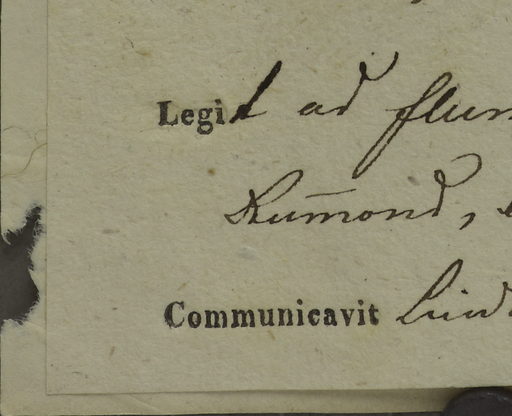 Legit ad flum
Rum̄ond,
Communicavit Lind